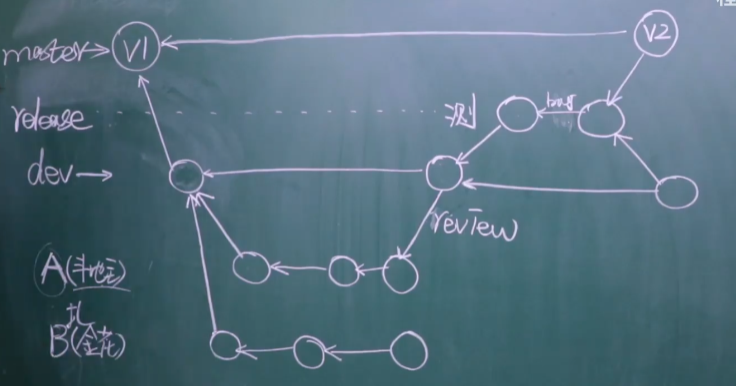 master
V1
V2
release
测
bug
dev
review
A(斗地主)
扎
B(金花)